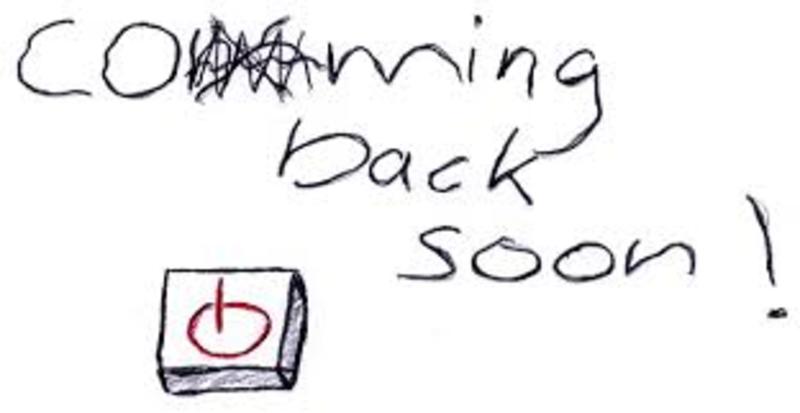 coming
back
soon!